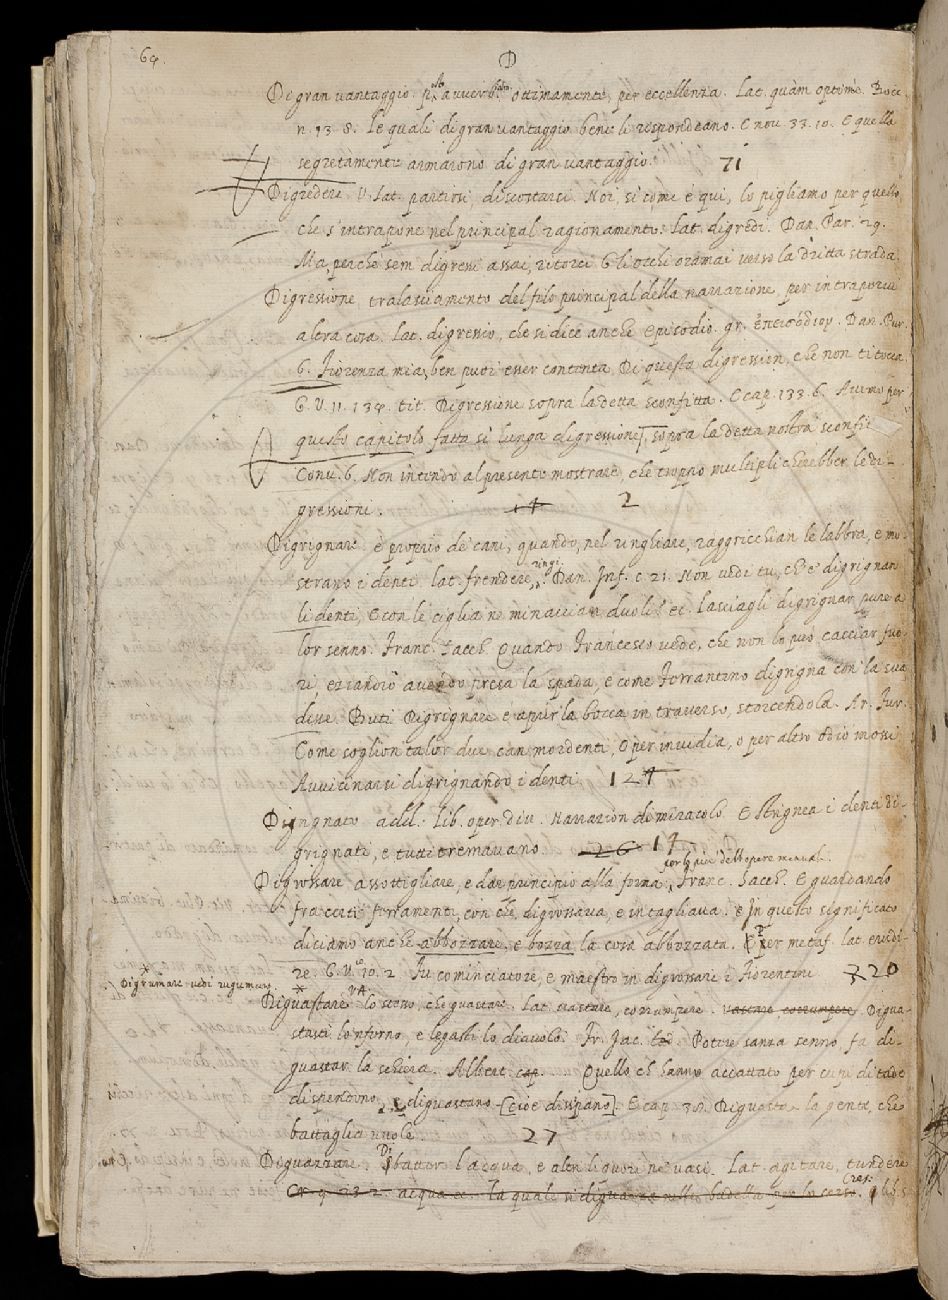 69
D
Di gran vantaggio. p.to avverb.te ottimamente, per eccellenza. Lat. quàm optimè. Bocc.
n. 13. 8. Le quali di gran vantaggio bene li rispondeano. E nov. 33. 10. E quella
segretamente armarono di gran vantaggio. 71
Digredere. V. Lat. partirsi, discostarsi. Noi, sì come è qui, lo pigliamo per quello,
che s'intrapone nel principal ragionamento. Lat. digredi. Dan. Par. 29.
Ma, perche sem digressi assai, ritorci Gli occhi oramai verso la dritta strada.
Digressione tralasciamento del filo principal della narrazione, per intraporvi
altra cosa. Lat. digressio, che si dice anche episodio. gr. ἐπεισόδιον. Dan. Pur.
6. Fiorenza mia, ben puoi esser contenta, Di questa digression, che non ti tocca.
G. V. 11. 134. tit. Digressione sopra la detta sconfitta. E cap. 133. 6. Avemo per
questo capitolo fatta sì lunga digressione, sopra la detta nostra sconfit
Conv. 6. Non intendo al presente mostrare, che troppo multiplicherebber le di-
gressioni. 14 2
Digrignare è proprio de' cani, quando, nel ringhiare, raggricchian le labbra, e mo-
strano i denti. lat. frendere, ringi. Dan. Inf. c. 21. Non vedi tu, ch'e' digrignan
li denti, E con le ciglia ne minaccian duoli? et. Lasciagli digrignar pure a
lor senno. Franc. Sacch. Quando Francesco vede, che non lo può cacciar fuo-
ri, eziandio avendo presa la spada, e come Ferrantino digrigna con la sua
disse. Buti Digrignare è aprir la bocca in traverso, storcendola. Ar. Fur.
Come soglion talor due can mordenti, O per invidia, o per altro odio mossi
Avvicinarsi digrignando i denti. 124
Digrignato add. Lib. oper. div. Narrazion di miracolo. E strignea i denti di-
grignati, e tutti tremavano. 26 14
per lo più dell'opere manual.
Digrossare assottigliare, e dar principio alla forma, Franc. Sacch. E guardando
fra certi ferramenti, con che digrossava, e intagliava. e In questo significato
diciamo anche abbozzare, e bozza la cosa abbozzata. Per metaf. lat. erudi-
re. G. V. 10. 2. Fu cominciatore, e maestro in digrossare i Fiorentini. 320
Digrumare vedi rugumare.
Diguastare V. A. lo stesso, che guastare. Lat. vastare, corrumpere. vastare corrumpere Digua-
stasti lo 'nferno, e legasti lo diavolo. Fr. Jac. tod. Potere sanza senno, fa di-
guastar la schiera. Albert. cap. Quello ch'hanno accattato per cupiditade
disperdono, e diguastano [cioè dissipano]. E cap. 38. Diguasta la gente, che
battaglia vuole. 27
Diguazzare. Dibatter l'acqua, e altri liquori ne' vasi. Lat. agitare, tundere
Cr. 9. 23. 2. acqua la quale si diguazza nella Cres. lib. 5